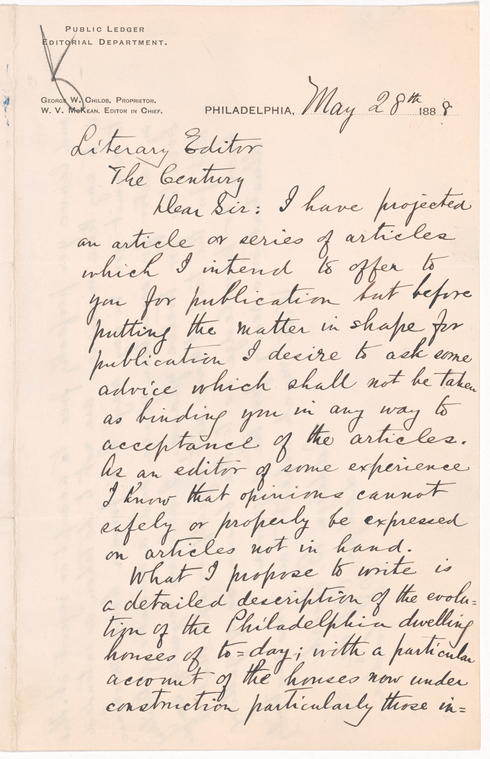 PUBLIC LEDGER
EDITORIAL DEPARTMENT.
GEORGE W. CHILDS, PROPRIETOR.
W. V. MCKEAN, EDITOR IN CHIEF.
PHILADELPHIA, May 28th 1888
Literary Editor
The Century
Dear Sir: I have projected
an article or series of articles
which I intend to offer to
you for publication but before
putting the matter in shape for
publication I desire to ask some
advice which shall not be taken
as binding you in any way to
acceptance of the articles.
As an editor of some experience
I know that opinions cannot
safely or properly be expressed
on articles not in hand.
What I propose to write is
a detailed description of the evolu=
tion of the Philadelphia dwelling
houses of to=day; with a particular
account of the houses now under
construction particularly those in=